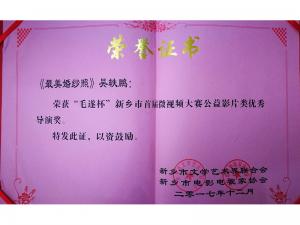 荣誉证书
《最美婚纱照》吴轶鹏：
荣获“毛遂杯”新乡市首届微视频大赛公益影片类优秀
导演奖。
特发此证，以资鼓励。
新乡市文学艺术界联合会
新乡市电影电视家协会
二〇一七年十二月